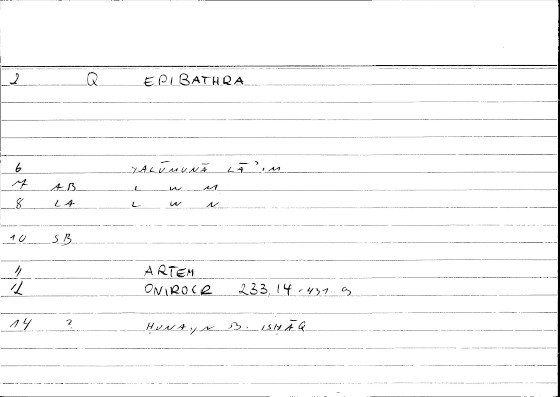 2 Q EPIBATHRA
6 YALŪMUNĀ LĀʾIM
7 AB L W M
8 LA L W N
10 SB
11 ARTEM
12 ONIROCR 233,14 - 431 9
14 ? ḤUNAYN B. ISḤĀQ